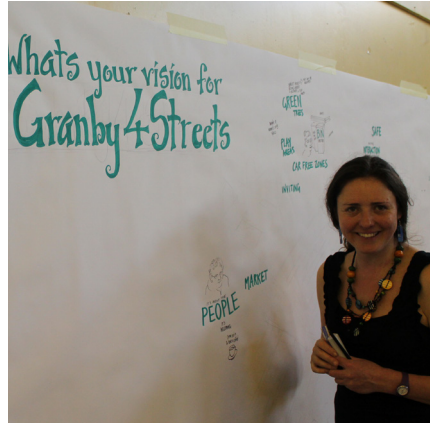 Whats your vision for
Granby 4 Streets
GREEN
TREES
SAFE
PLAY
AREAS
CAR FREE ZONES
INVITING
MARKET
PEOPLE